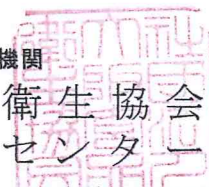 機関
衛生協会
センター